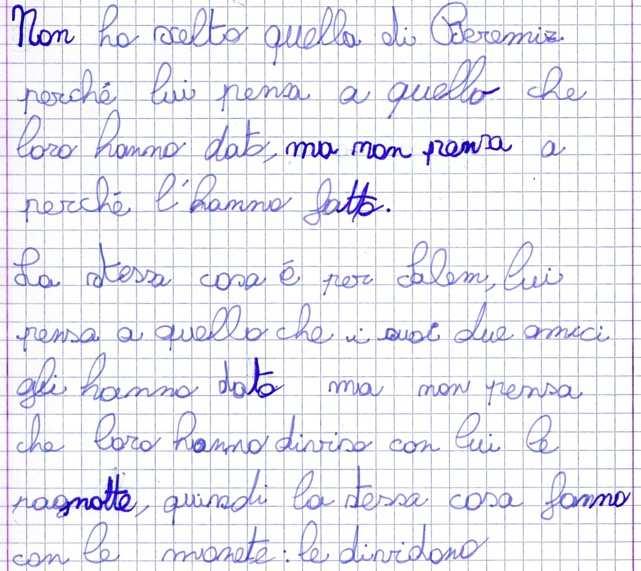 Non ho scelto quella di Beremiz
perché lui pensa a quello che
loro hanno dato, ma non pensa a
perché l'hanno fatto.
La stessa cosa è per Salem, lui
pensa a quello che i suoi due amici
gli hanno dato ma non pensa
che loro hanno diviso con lui le
pagnotte, quindi la stessa cosa fanno
con le monete: le dividono